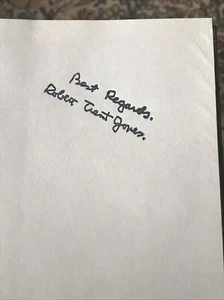 Best Regards.
Robert Trent Jones.